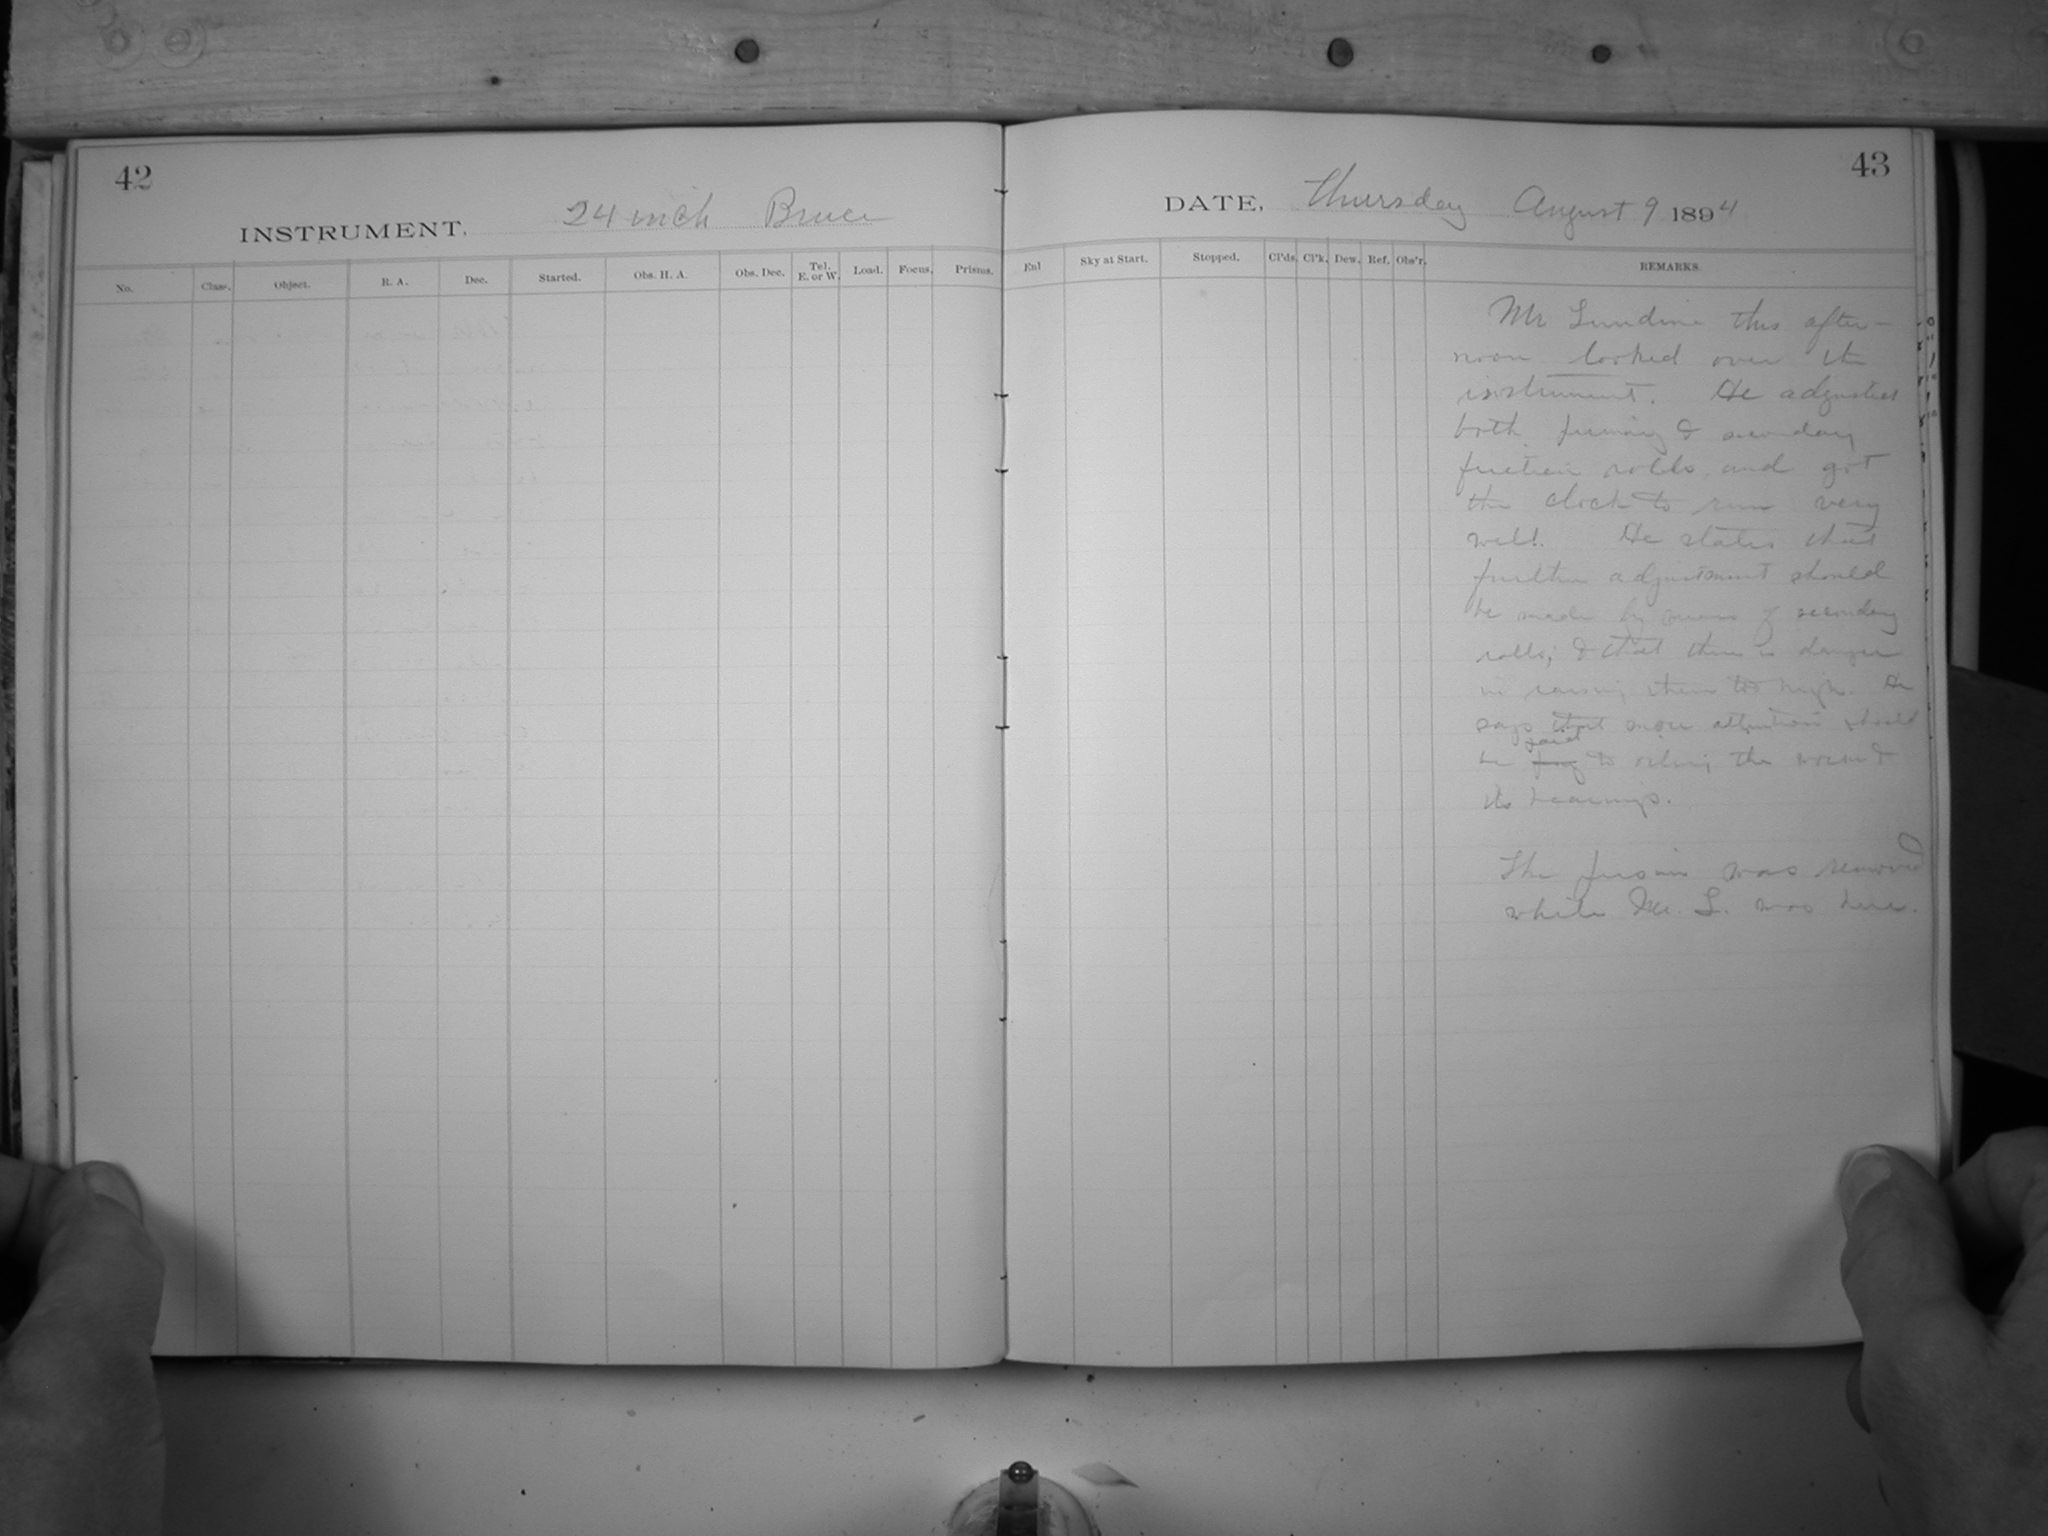 42
INSTRUMENT. 24 inch Bruce
No. Class. Object. R. A. Dec. Started. Obs. H. A. Obs. Dec. Tel. E. or W. Load. Focus. Prisms.
43
DATE, Thursday August 9 1894
Enl Sky at Start. Stopped. Cl'ds. Cl'k. Dew. Ref. Obs'r. REMARKS.
Mr Lundin this after-
noon looked over the
instrument. He adjusted
both primary & secondary
friction rolls, and got
the clock to run very
well. He states that
further adjustment should
be made by means of secondary
rolls, & that there is danger
in raising them too high. He
says that more attention should
be paid to oiling the worm &
its bearings.
The prism was removed
while Mr. L. was here.